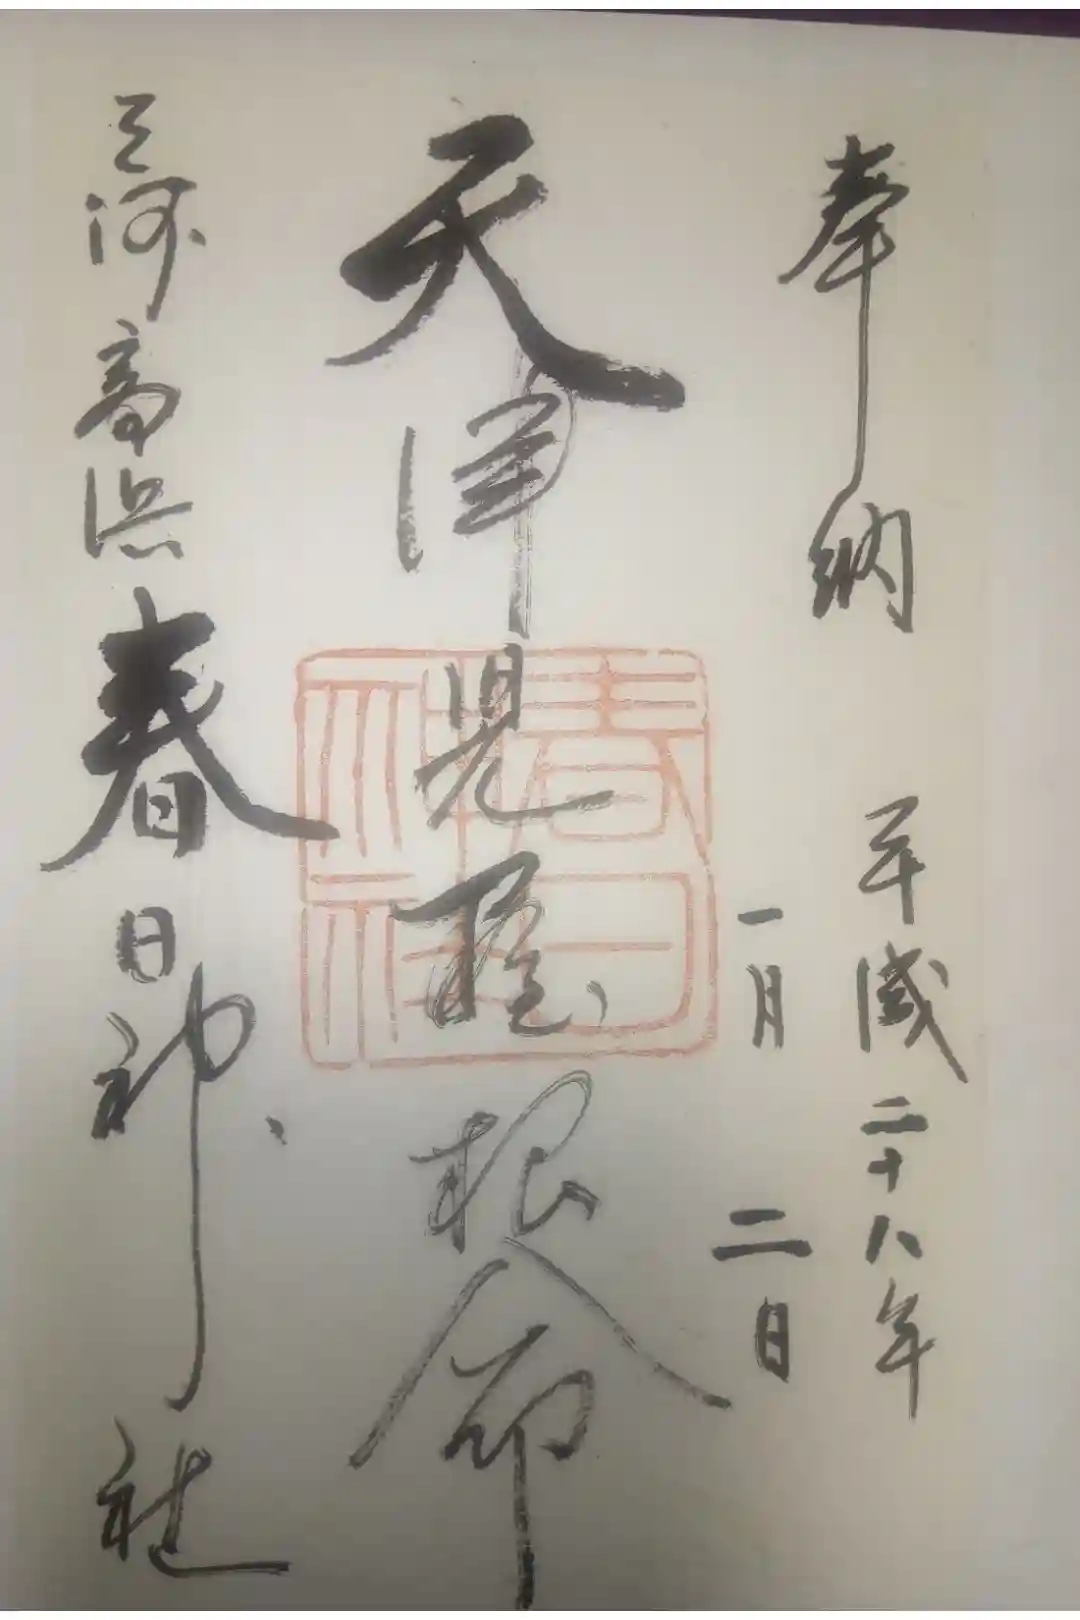 奉納
平成二十八年
一月二日
天津児屋根命
三河高浜春日神社
春日神社